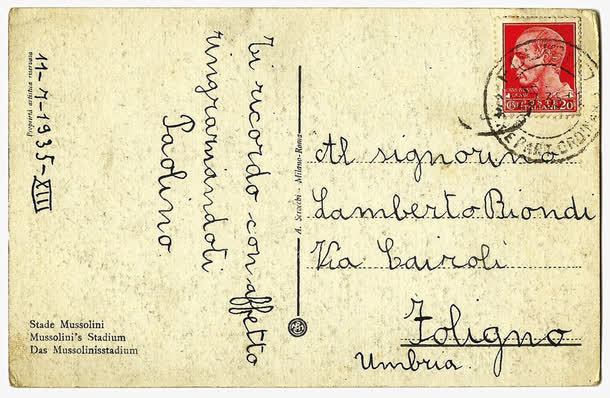 11-7-1935-XIII
Proprietà artistica riservata
Ti ricordo con affetto
ringraziandoti
Paolino.
A. Scrocchi - Milano-Roma
Al signorino
Lamberto Biondi
Via Cairoli
Foligno
Umbria.
Stade Mussolini
Mussolini's Stadium
Das Mussolinisstadium
20